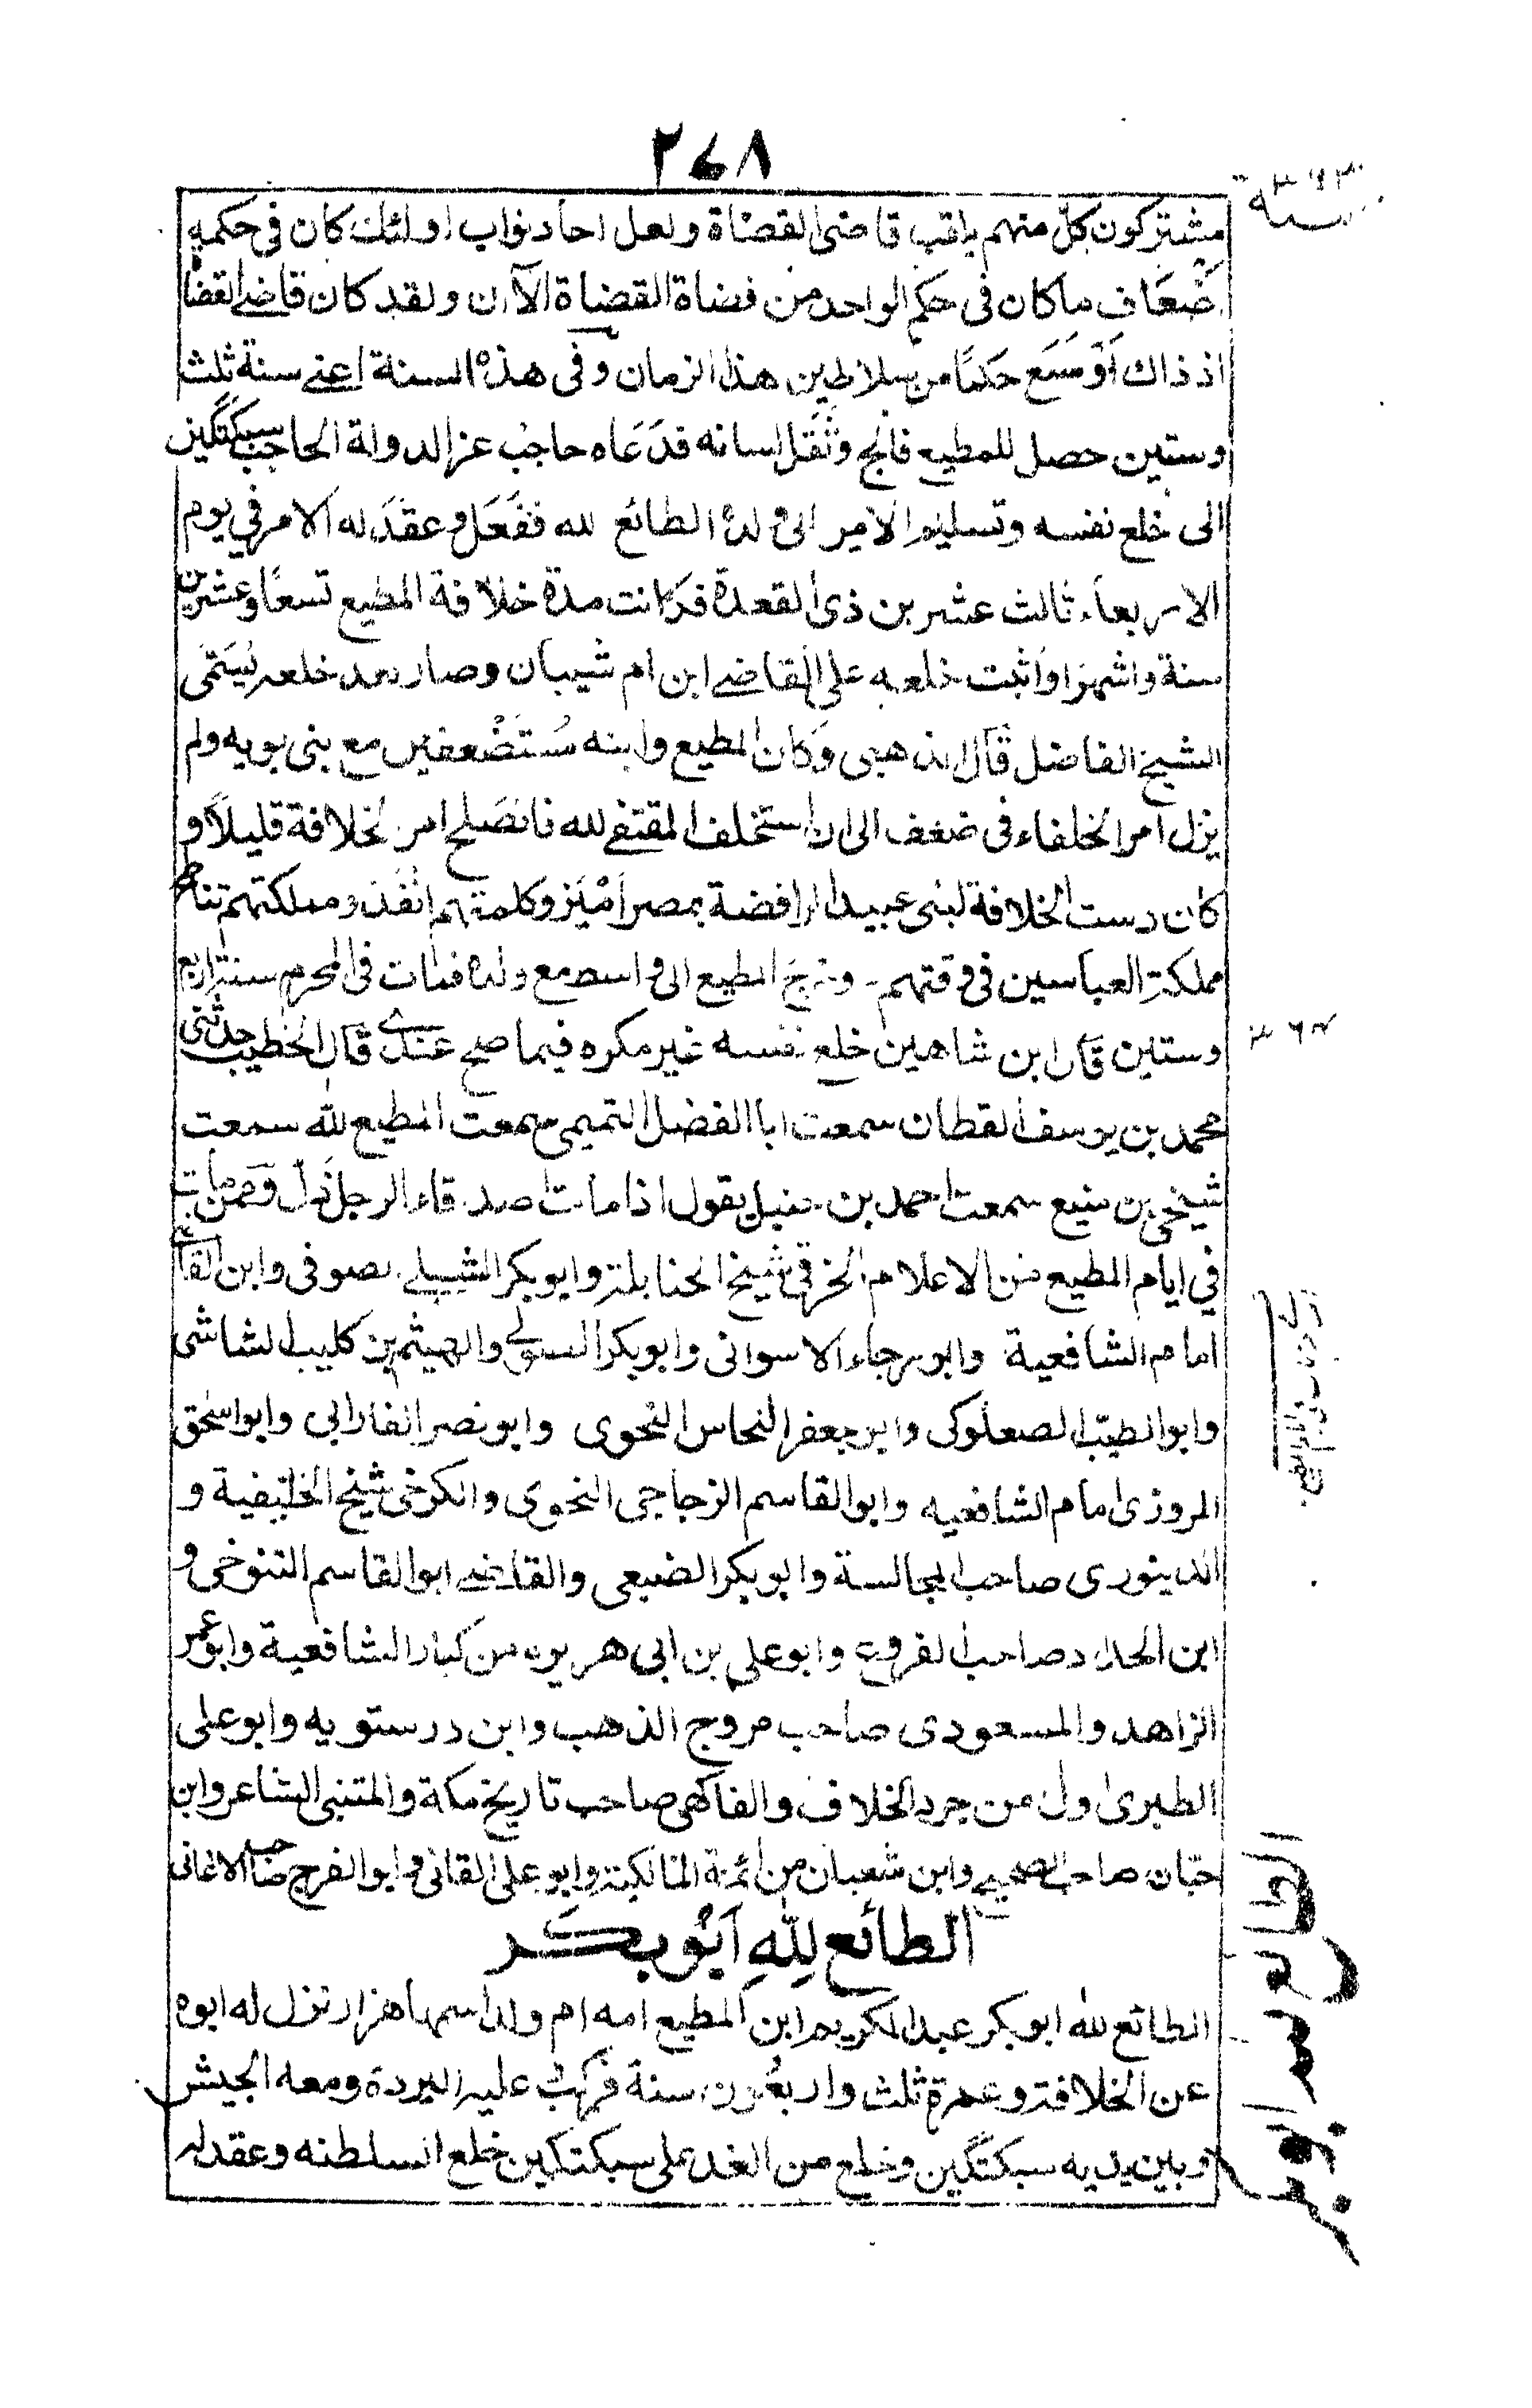 ٢٦٨
سنة ٣٦٣
مشتركون كل منهم يلقب قاضى القضاة ولعل احاد نواب اولئك كان فى حكمه
ضعاف ما كان فى حكم الواحد من قضاة القضاة الآن ولقد كان قاضى القضاة
اذ ذاك اوسع حكمًا من سلاطين هذا الزمان وفى هذه السنة اعنى سنة ثلث
وستين حصل للمطيع فالج وثقل لسانه فدعاه حاجب عز الدولة الحاجب سبكتگين
الى خلع نفسه وتسليم الامر الى ولده الطائع لله ففعل وعقد له الامر فى يوم
الاربعاء ثالث عشر بن ذى القعدة فكانت مدة خلافة المطيع تسعًا وعشرين
سنة واشهرا واثبت خلعه على القاضى ابن ام شيبان وصار بعد خلعه يسمى
الشيخ الفاضل قال الذهبى وكان المطيع وابنه مستضعفين مع بنى بويه ولم
يزل امر الخلفاء فى ضعف الى ان استخلف المقتفى لله فانصلح امر الخلافة قليلاً و
كان دست الخلافة لبنى عبيد الرافضة بمصر اميز وكلمتهم انفذ ومملكتهم تناطح
مملكة العباسين فى وقتهم وخرج المطيع الى واسط مع ولده فمات فى المحرم سنة اربع
وستين قال ابن شاهين خلع نفسه غير مكره فيما صح عندى قال الخطيب حدثنى
٣٦٤
محمد بن يوسف القطان سمعت ابا الفضل التميمى سمعت المطيع لله سمعت
شيخى بن منيع سمعت احمد بن حنبل يقول اذا مات اصدقاء الرجل ذل وممن مات
فى ايام المطيع من الاعلام الخرقى شيخ الحنابلة وابوبكر الشبلى الصوفى وابن القاص
امام الشافعية وابو رجاء الاسوانى وابوبكر الصولى والهيثم بن كليب الشاشى
وابوالطيب الصعلوكى وابو جعفر النحاس النحوى وابو نصر الفارابى وابو اسحق
المروزى امام الشافعيه وابو القاسم الزجاجى النحوى والكرخى شيخ الحنفية و
الدينورى صاحب المجالسة وابوبكر الضبعى والقاضى ابو القاسم التنوخى و
ابن الحداد صاحب الفروع وابو على بن ابى هريرة من كبار الشافعية وابو عمر
الزاهد والمسعودى صاحب مروج الذهب وابن درستويه وابو على
الطبرى اول من جرد الخلاف والفاكهى صاحب تاريخ مكة والمتنبى الشاعر وابن
حبان صاحب الصحيح وابن شعبان من ائمة المالكية وابو على القالى وابو الفرج صاحب الاغانى
الطائع لله ابو بكر
الطائع لله ابو بكر عبد الكريم ابن المطيع امه ام ولد اسمها هزار نزل له ابوه
عن الخلافة وعمره ثلث واربعون سنة فركب عليه البردة ومعه الجيش
وبين يديه سبكتگين وخلع من الغد على سبكتكين خلع السلطنه وعقد له
الطائع لله ابو بكر